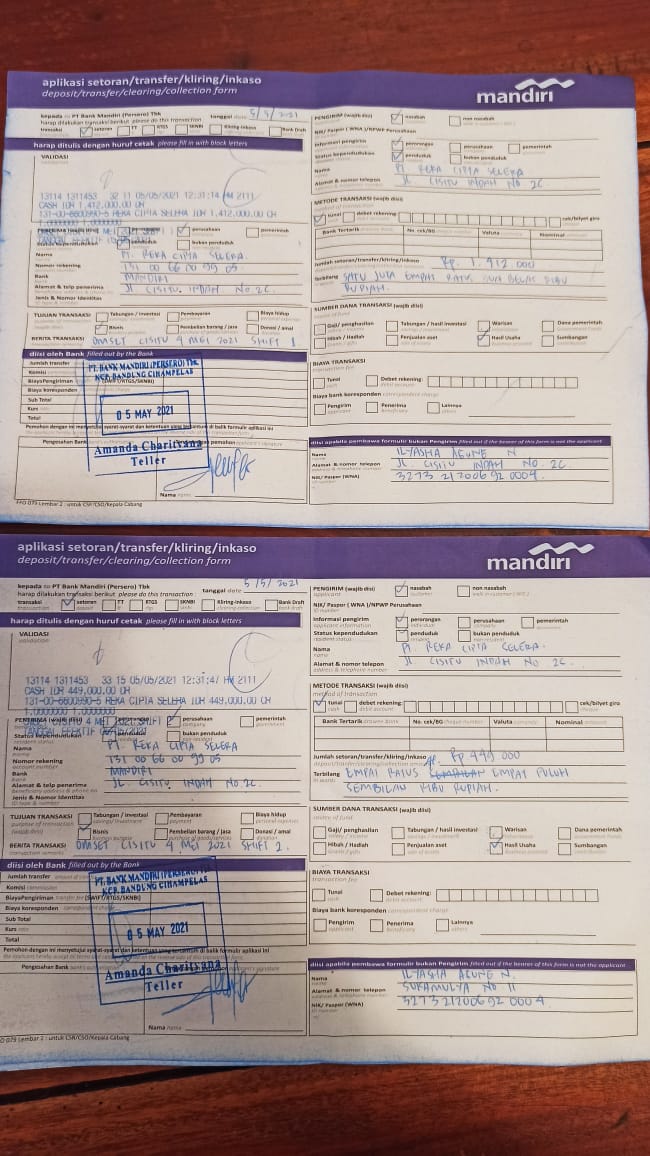 aplikasi setoran/transfer/kliring/inkaso
deposit/transfer/clearing/collection form
mandiri
kepada to PT Bank Mandiri (Persero) Tbk
harap dilakukan transaksi berikut please do this transaction
tanggal date 5/5/2021
transaksi setoran TT RTGS SKNBI Kliring-Inkaso Bank Draft
harap ditulis dengan huruf cetak please fill in with block letters
VALIDASI
13114 1311453 32 11 05/05/2021 12:31:14 PM 2111
CASH IDR 1,412,000.00 CR
131-00-6600990-5 REKA CIPTA SELERA IDR 1,412,000.00 CR
1.0000000 1.0000000
PENERIMA (wajib diisi) perusahaan pemerintah
Status kependudukan penduduk bukan penduduk
Nama PT. REKA CIPTA SELERA.
Nomor rekening 131 00 66 00 99 05
Bank MANDIRI
Alamat & telp penerima JL CISITU INDAH NO.2C.
Jenis & Nomor Identitas
TUJUAN TRANSAKSI Tabungan / Investasi Pembayaran Biaya hidup
Bisnis Pembelian barang / jasa Donasi / amal
BERITA TRANSAKSI OMSET CISITU 4 MEI 2021 SHIFT 1
diisi oleh Bank filled out by the Bank
Jumlah transfer
Komisi
BiayaPengiriman (SWIFT/RTGS/SKNBI)
Biaya koresponden
Sub Total
Kurs
Total
PT. BANK MANDIRI (PERSERO) Tbk
KCP. BANDUNG CIHAMPELAS
05 MAY 2021
Amanda Charityana
Teller
Pemohon dengan ini menyetujui syarat-syarat dan ketentuan yang tercantum di balik formulir aplikasi ini
Pengesahan Bank
Nama name
Lembar 2 : untuk CSR/CSO/Kepala Cabang
PENGIRIM (wajib diisi) nasabah non nasabah
NIK/ Paspor (WNA)/NPWP Perusahaan
Informasi pengirim perorangan perusahaan pemerintah
Status kependudukan penduduk bukan penduduk
Nama PT REKA CIPTA SELERA
Alamat & nomor telepon JL CISITU INDAH NO 2C
METODE TRANSAKSI (wajib diisi)
Tunai debet rekening: cek/bilyet giro
Bank Tertarik No. cek/BG Valuta Nominal
Jumlah setoran/transfer/kliring/inkaso Rp. 1.412.000
Terbilang SATU JUTA EMPAT RATUS DUA BELAS RIBU
RUPIAH.
SUMBER DANA TRANSAKSI (wajib diisi)
Gaji/ penghasilan Tabungan / hasil investasi Warisan Dana pemerintah
Hibah / Hadiah Penjualan aset Hasil Usaha Sumbangan
BIAYA TRANSAKSI
Tunai Debet rekening:
Biaya bank koresponden correspondent charge
Pengirim Penerima Lainnya
diisi apabila pembawa formulir bukan Pengirim filled out if the bearer of this form is not the applicant
Nama ILYASHA AGUNG N
Alamat & nomor telepon JL. CISITU INDAH NO. 2C
NIK/ Paspor (WNA) 3273 212006 92 0004.
aplikasi setoran/transfer/kliring/inkaso
deposit/transfer/clearing/collection form
mandiri
kepada to PT Bank Mandiri (Persero) Tbk
harap dilakukan transaksi berikut please do this transaction
tanggal date 5/5/2021
transaksi setoran TT RTGS SKNBI Kliring-inkaso Bank Draft
harap ditulis dengan huruf cetak please fill in with block letters
VALIDASI
13114 1311453 33 15 05/05/2021 12:31:47 PM 2111
CASH IDR 449,000.00 CR
131-00-6600990-5 REKA CIPTA SELERA IDR 449,000.00 CR
1.0000000 1.0000000
PENERIMA (wajib diisi) perusahaan pemerintah
Status kependudukan penduduk bukan penduduk
Nama PT. REKA CIPTA SELERA
Nomor rekening 131 00 66 00 99 05
Bank MANDIRI
Alamat & telp penerima JL. CISITU INDAH NO.2C.
Jenis & Nomor Identitas
TUJUAN TRANSAKSI Tabungan / Investasi Pembayaran Biaya hidup
Bisnis Pembelian barang / jasa Donasi / amal
BERITA TRANSAKSI OMSET CISITU 4 MEI 2021 SHIFT 2.
diisi oleh Bank filled out by the Bank
Jumlah transfer
Komisi
BiayaPengiriman (SWIFT/RTGS/SKNBI)
Biaya koresponden
Sub Total
Kurs
Total
PT. BANK MANDIRI (PERSERO)
KCP. BANDUNG CIHAMPELAS
05 MAY 2021
Amanda Charityana
Teller
Pemohon dengan ini menyetujui syarat-syarat dan ketentuan yang tercantum di balik formulir aplikasi ini
Pengesahan Bank
Nama name
Lembar 2 : untuk CSR/CSO/Kepala Cabang
PENGIRIM (wajib diisi) nasabah non nasabah
NIK/ Paspor (WNA)/NPWP Perusahaan
Informasi pengirim perorangan perusahaan pemerintah
Status kependudukan penduduk bukan penduduk
Nama PT. REKA CIPTA SELERA.
Alamat & nomor telepon JL CISITU INDAH NO 2C
METODE TRANSAKSI (wajib diisi)
method of transaction
Tunai debet rekening: cek/bilyet giro
Bank Tertarik No. cek/BG Valuta Nominal
Jumlah setoran/transfer/kliring/inkaso Rp 449 000
Terbilang EMPAT RATUS EMPAT PULUH
SEMBILAN RIBU RUPIAH.
SUMBER DANA TRANSAKSI (wajib diisi)
Gaji/ penghasilan Tabungan / hasil investasi Warisan Dana pemerintah
Hibah / Hadiah Penjualan aset Hasil Usaha Sumbangan
BIAYA TRANSAKSI
transaction fee
Tunai Debet rekening:
Biaya bank koresponden correspondent charge
Pengirim Penerima Lainnya
diisi apabila pembawa formulir bukan Pengirim filled out if the bearer of this form is not the applicant
Nama ILYASHA AGUNG N.
Alamat & nomor telepon SUKAMULYA NO 11
NIK/ Paspor (WNA) 3273 212006 92 0004